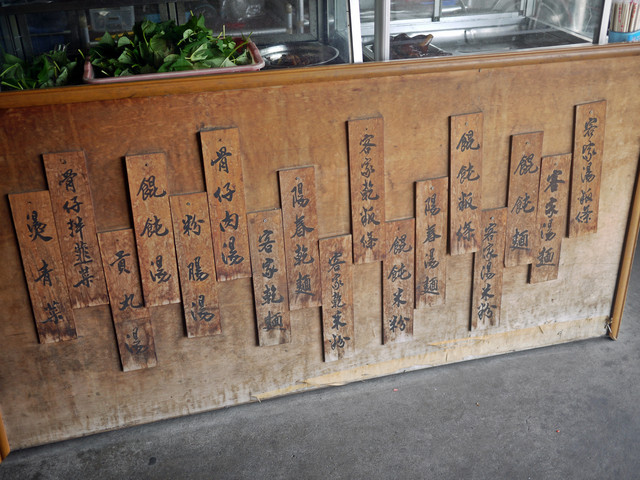 客家湯粄條
客家湯麵
餛飩麵
客家湯米粉
餛飩粄條
陽春湯麵
餛飩米粉
客家乾粄條
客家乾米粉
陽春乾麵
客家乾麵
骨仔肉湯
粉腸湯
餛飩湯
貢丸湯
骨仔拌韭菜
燙青菜